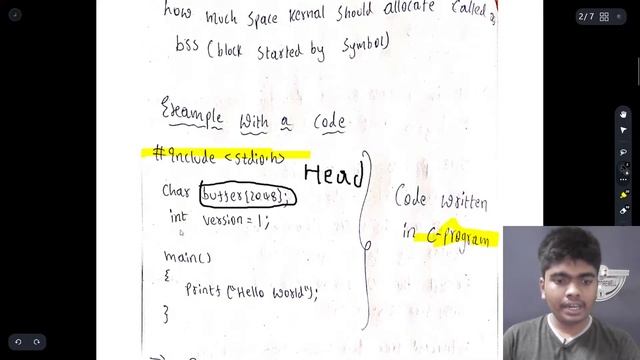 how much space kernel should allocate called as
bss (block started by symbol)
Example with a code
#include <stdio.h>
Head
char buffer[2048];
int version = 1;
Code written
in C-program
main()
{
printf ("Hello world");
}
2/7